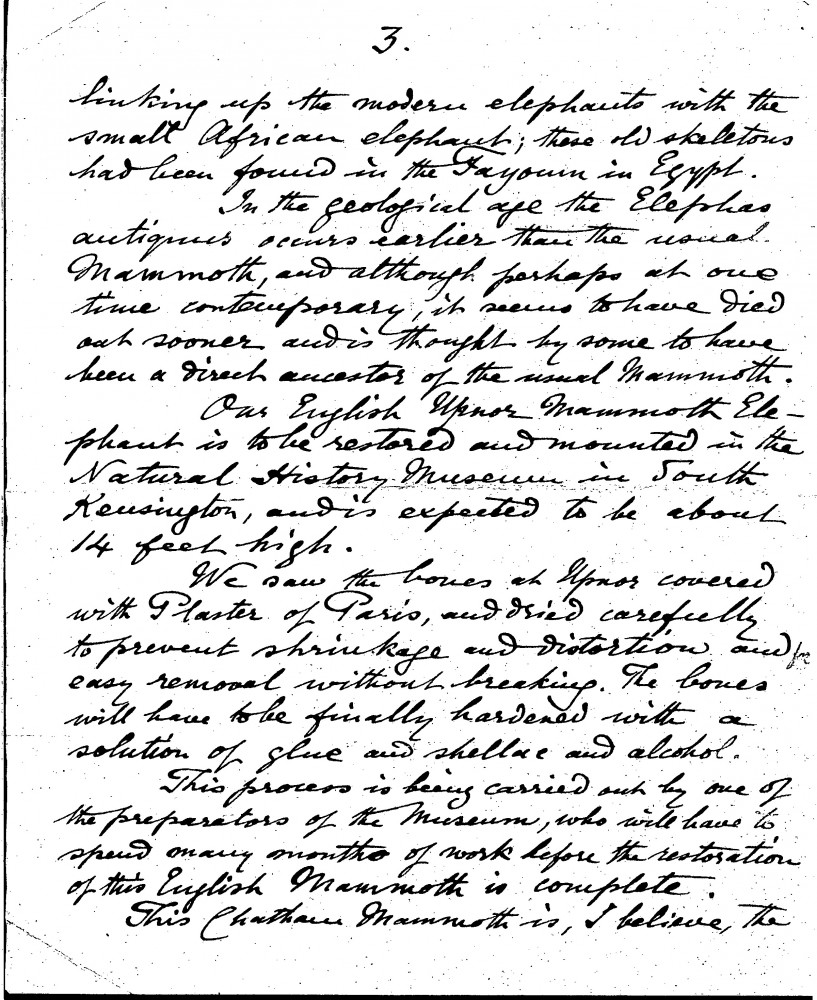 3.
linking up the modern elephants with the
small African elephant; these old skeletons
had been found in the Fayoum in Egypt.
In the geological age the Elephas
antiquus occurs earlier than the usual
Mammoth, and although perhaps at one
time contemporary, it seems to have died
out sooner and is thought by some to have
been a direct ancestor of the usual Mammoth.
Our English Upnor Mammoth Ele-
phant is to be restored and mounted in the
Natural History Museum in South
Kensington, and is expected to be about
14 feet high.
We saw the bones at Upnor covered
with Plaster of Paris, and dried carefully
to prevent shrinkage and distortion and for
easy removal without breaking. The bones
will have to be finally hardened with a
solution of glue and shellac and alcohol.
This process is being carried out by one of
the preparators of the Museum, who will have to
spend many months of work before the restoration
of this English Mammoth is complete.
This Chatham Mammoth is, I believe, the